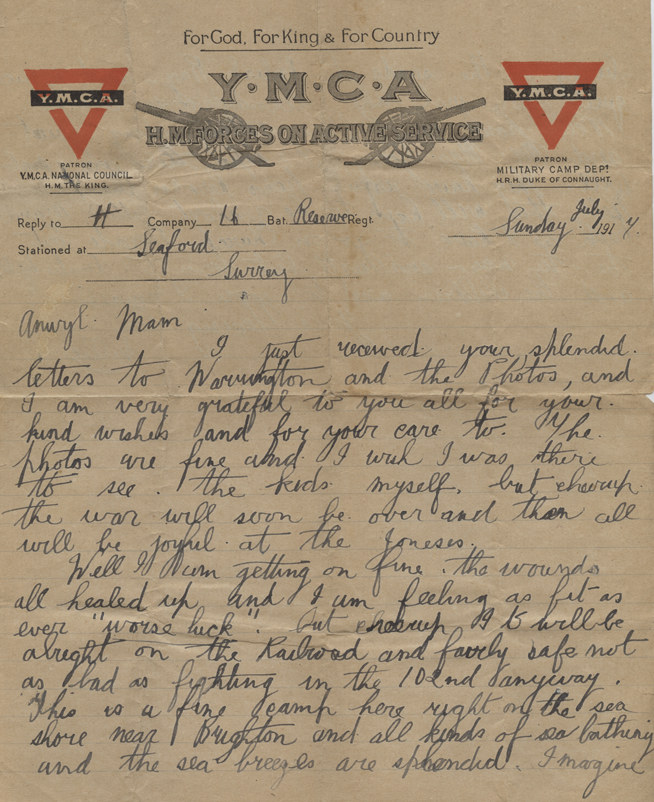 For God, For King & For Country
Y·M·C·A
H.M. FORCES ON ACTIVE SERVICE
Y.M.C.A.
Y.M.C.A.
PATRON
Y.M.C.A. NATIONAL COUNCIL.
H.M. THE KING.
PATRON
MILITARY CAMP DEPT
H.R.H. DUKE OF CONNAUGHT.
Reply to H Company 16 Bat. Reserve Regt. Sunday July 1917.
Stationed at Seaford
Surrey
Anwyl Mam
I just received your splendid
letters to Warrington and the Photos, and
I am very grateful to you all for your
kind wishes and for your care to. The
photos are fine and I wish I was there
to see the kids myself, but cheerup
the war will soon be over and then all
will be joyful at the Joneses.
Well I am getting on fine. the wounds
all healed up and I am feeling as fit as
ever "worse luck". But cheerup it will be
alright on the Railroad and fairly safe not
as bad as fighting in the 102nd anyway.
This is a fine camp here right on the sea
shore near Brighton and all kinds of sea bathing
and the sea breezes are splendid. I imagine